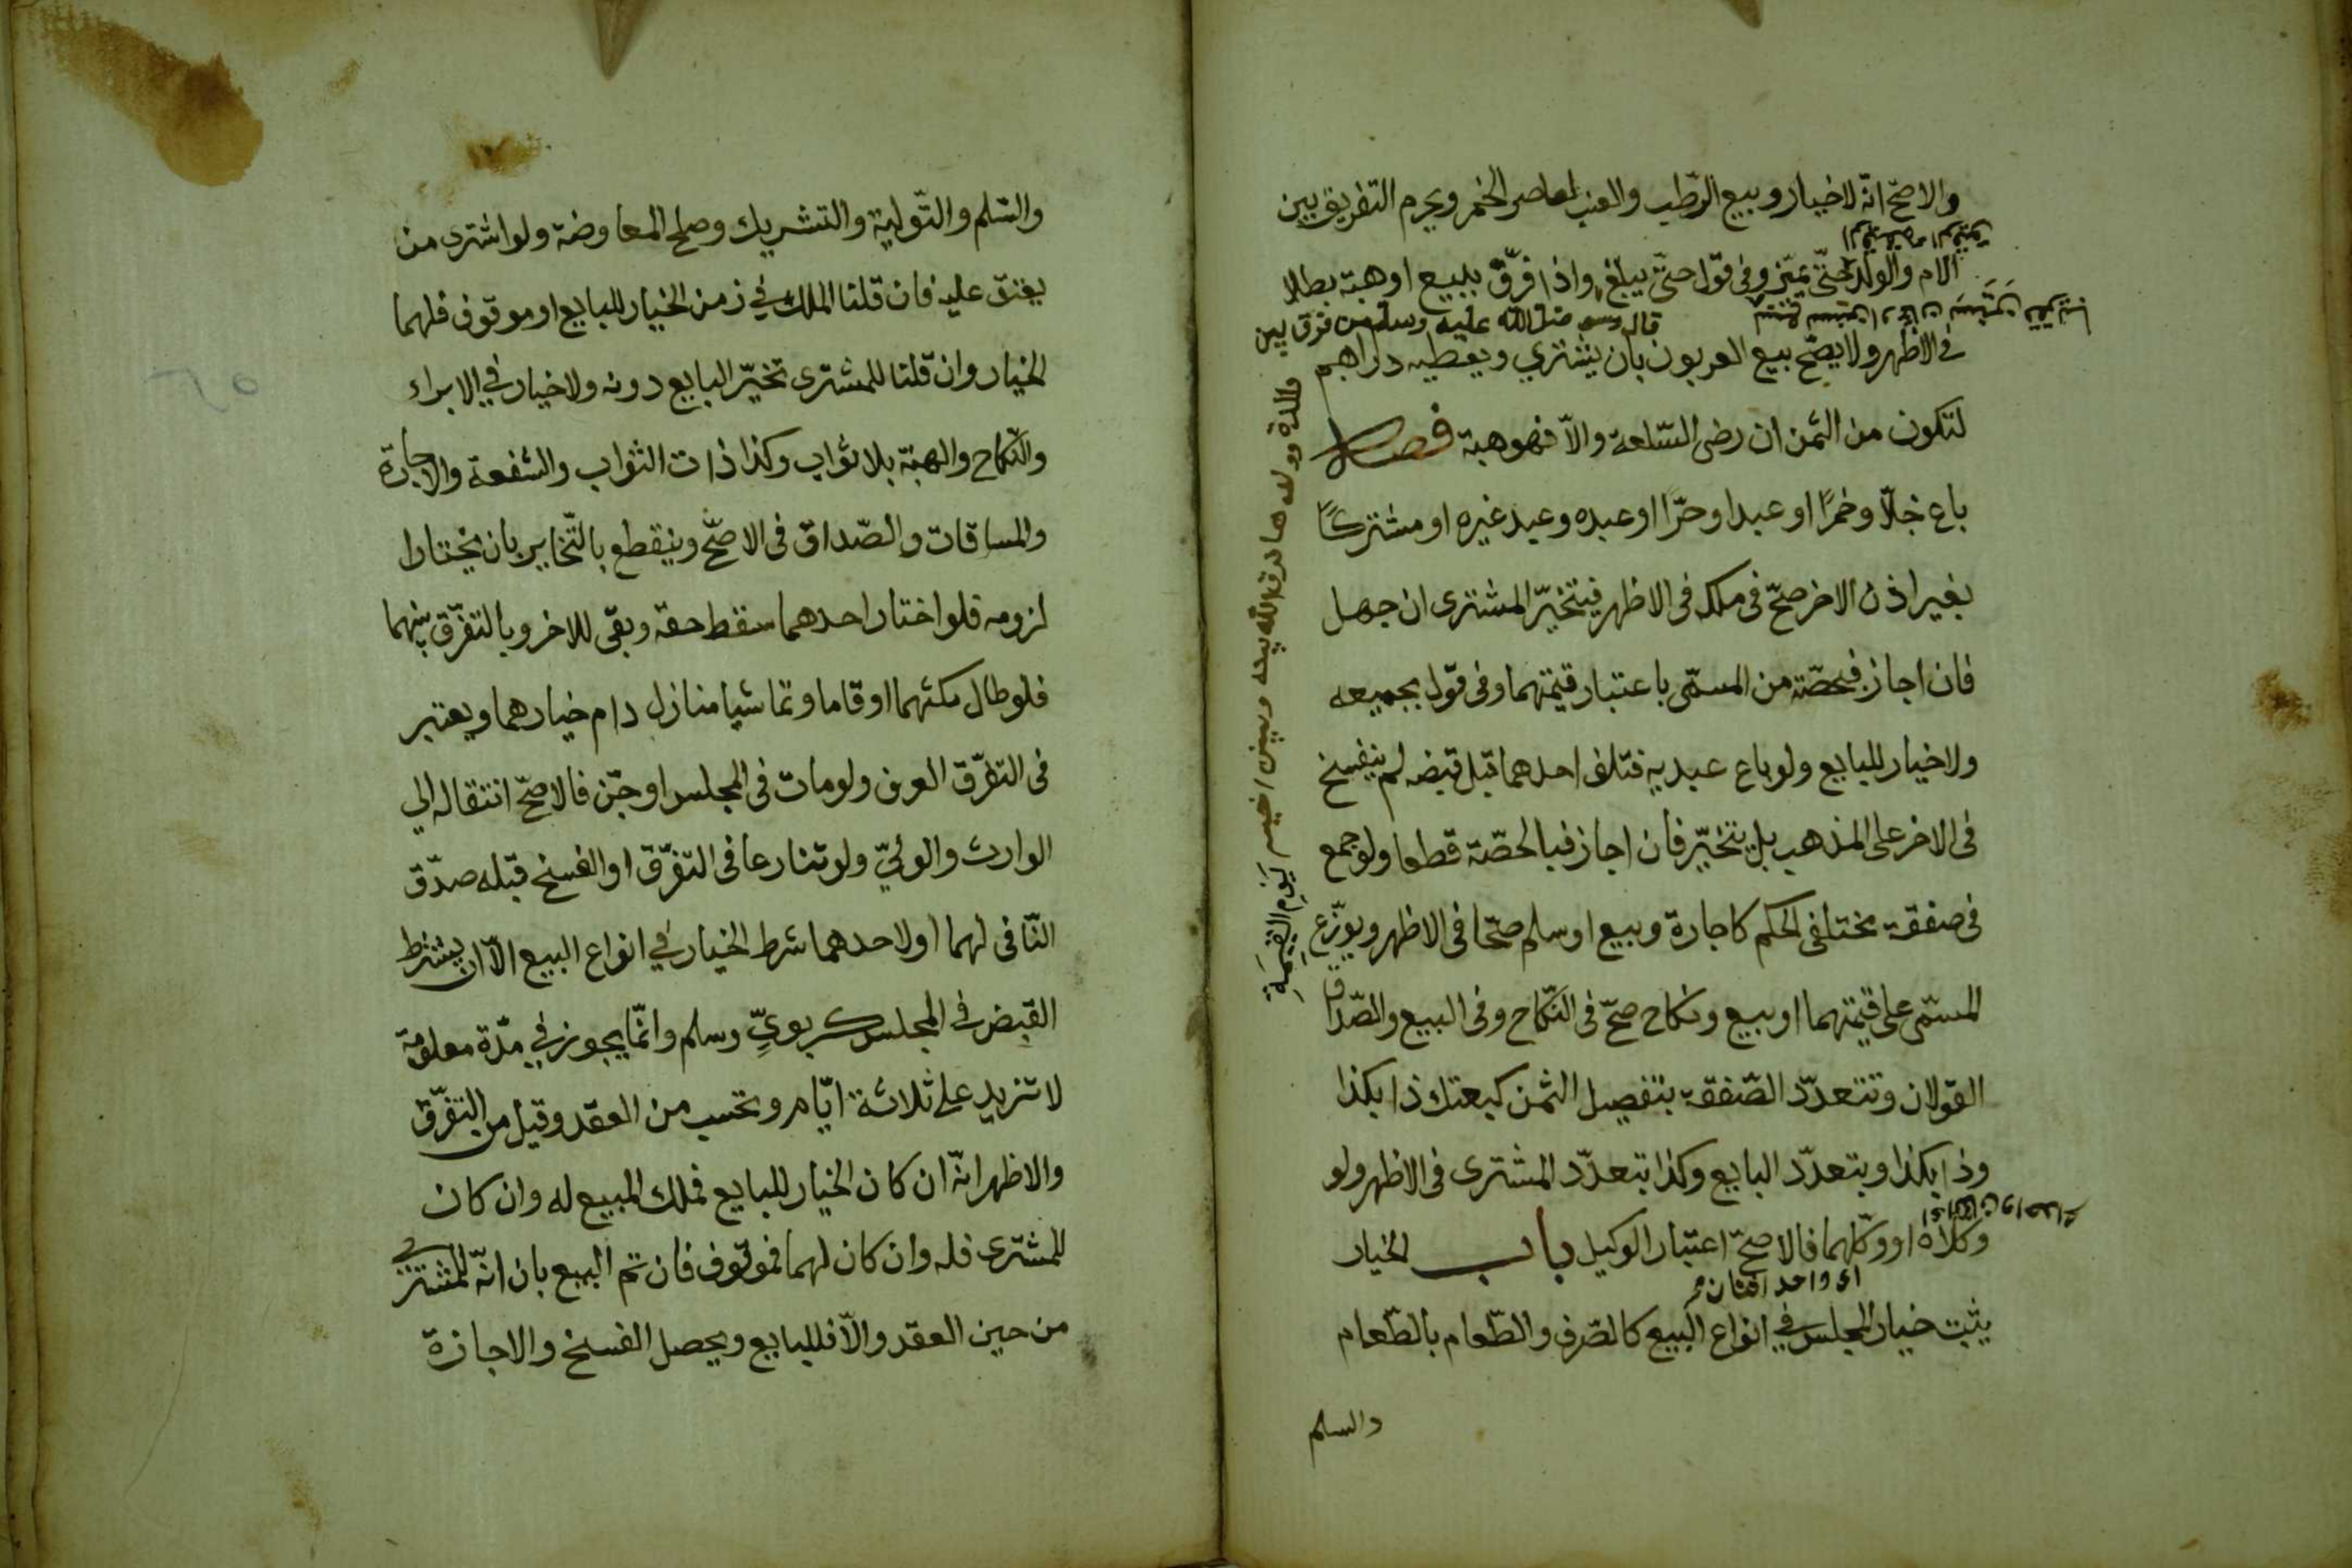 والاصحّ انّه لا خيار وبيع الرّطب والعنب لعاصر الخمر ويحرم التفريق بين
الام والولد حتّى يميّز وفى قول حتّى يبلغ واذا فرّق ببيع او هبة بطلا
قال رسو صلى الله عليه وسلم من فرق بين
فى الاظهر ولا يصحّ بيع العربون بان يشتري ويعطيه دراهم
لتكون من الثمن ان رضى السّلعة والاّ فهو هبة فصل
باع خلاّ وخمرًا او عبدا وحرّا او عبده وعبد غيره او مشتركًا
بغير اذن الاخر صحّ فى ملكه فى الاظهر فيتخيّر المشترى ان جهل
فان اجاز فبحصّته من المسمّى باعتبار قيمتهما وفى قول بجميعه
ولا خيار للبايع ولو باع عبديه فتلف احدهما قبل قبضه لم ينفسخ
فى الاخر على المذهب بل يتخيّر فان اجاز فبالحصّة قطعا ولو جمع
فى صفقة مختلفى الحكم كاجارة وبيع او سلم صحّا فى الاظهر ويوزّع
المسمّى على قيمتهما او بيع ونكاح صحّ فى النّكاح وفى البيع والصّداق
القولان وتتعدّد الصّفقة بتفصيل الثمن كبعتك ذا بكذا
وذا بكذا وبتعدّد البايع وكذا بتعدّد المشترى فى الاظهر ولو
وكلاه او وكّلهما فالاصحّ اعتبار الوكيل باب الخيار
اى واحد اثنان
يثبت خيار المجلس في انواع البيع كالصّرف والطّعام بالطّعام
والسلم
والدة وولدها فرق الله بينه وبين
يوم القيمة
والسّلم والتّولية والتشريك وصلح المعاوضة ولو اشترى من
يعتق عليه فان قلنا الملك في زمن الخيار للبايع او موقوف فلهما
الخيار وان قلنا للمشترى تخيّر البايع دونه ولا خيار في الابراء
والنّكاح والهبة بلا ثواب وكذا ذات الثواب والشفعة والاجارة
والمساقات والصّداق فى الاصحّ وينقطع بالتّخاير بان يختارا
لزومه فلو اختار احدهما سقط حقه وبقى للاخر وبالتفرّق ببينهما
فلو طال مكثهما او قاما وتماشيا منازل دام خيارهما ويعتبر
فى التفرّق العرف ولو مات فى المجلس او جنّ فالاصحّ انتقاله الي
الوارث والوليّ ولو تنازعا فى التفرّق او الفسخ قبله صدّق
النّافى لهما او لاحدهما شرط الخيار في انواع البيع الاّ ان يشترط
القبض فى المجلس كربويّ وسلم وانّما يجوز في مدّة معلومة
لا تزيد على ثلاثة ايّام وتحسب من العقد وقيل من التفرّق
والاظهر انّه ان كان الخيار للبايع فملك المبيع له وان كان
للمشترى فله وان كان لهما فموقوف فان تم البيع بان انّه للمشترى
من حين العقد والاّ فللبايع ويحصل الفسخ والاجازة